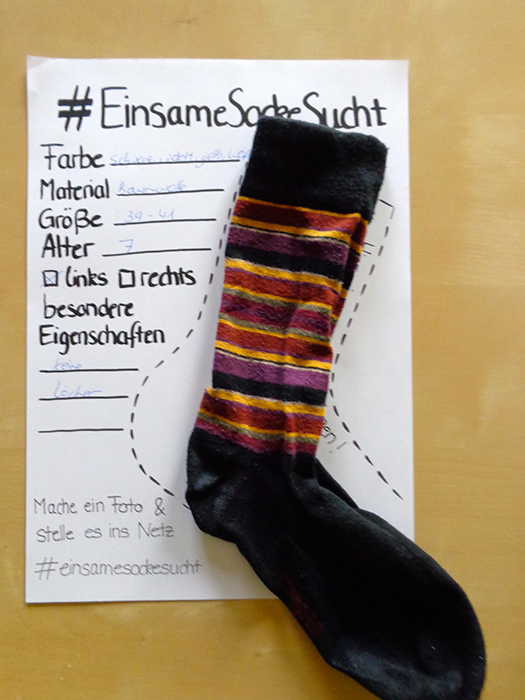 #EinsameSockeSucht
Farbe schwarz, violett, gelb, weiß
Material Baumwolle
Größe 39-41
Alter 7
links rechts
besondere
Eigenschaften
keine
Löcher
Mache ein Foto &
stelle es ins Netz
#einsamesockesucht